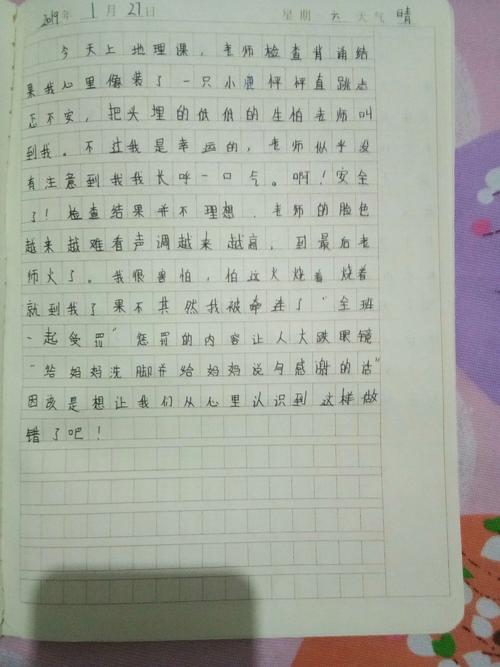 2019年 1月27日 星期 六 天气 晴
今天上地理课，老师检查背诵结
果我心里像装了一只小鹿怦怦直跳忐
忑不安，把头埋的低低的生怕老师叫
到我。不过我是幸运的，老师似乎没
有注意到我我长呼一口气。啊！安全
了！检查结果并不理想，老师的脸色
越来越难看声调越来越高，到最后老
师火了。我很害怕，怕这火烧着烧着
就到我了果不其然我被牵进了"全班
一起受罚"惩罚的内容让人大跌眼镜
"给妈妈洗脚并给妈妈说句感谢的话"
因该是想让我们从心里认识到这样做
错了吧！